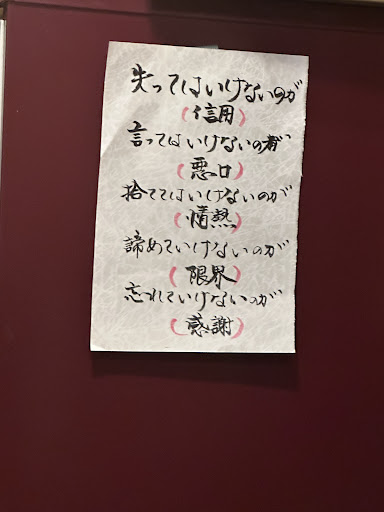 失ってはいけないのが
(信用)
言ってはいけないのが
(悪口)
捨ててはいけないのが
(情熱)
諦めていけないのが
(限界)
忘れていけないのが
(感謝)